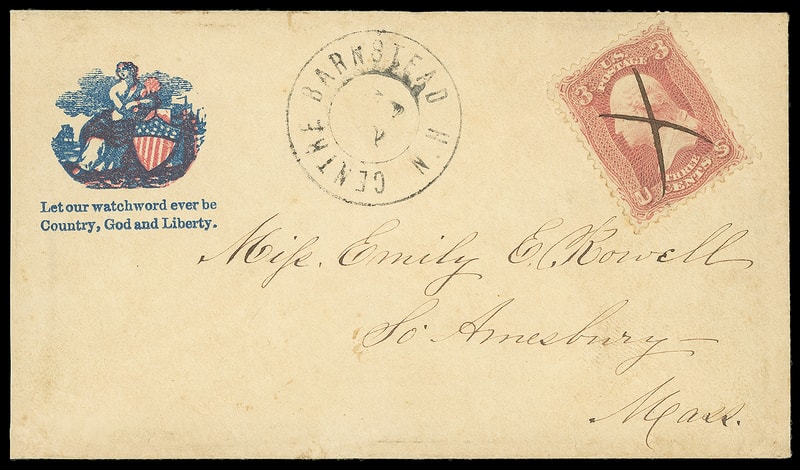 Let our watchword ever be
Country, God and Liberty.
CENTRE BARNSTEAD N.H
U.S. POSTAGE
3 3
U S
THREE CENTS
Miss. Emily E. Rowell
So Amesbury—
Mass.